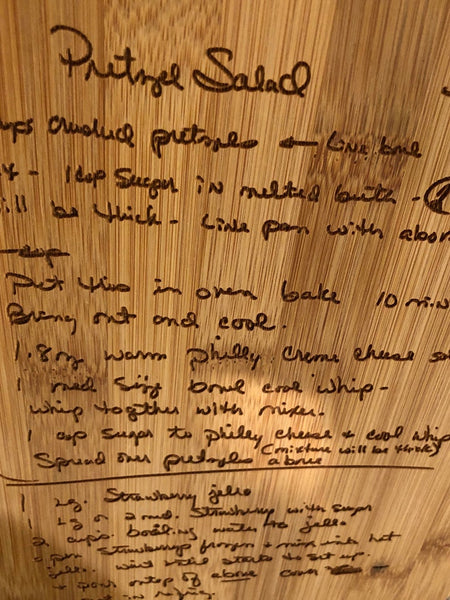 Pretzel Salad
ups crushed pretzels ← Line bowl
- 1 cup Sugar in melted butter -
ill be thick - Line pan with above
cup
Put this in oven bake 10 min
Bring out and cool.
1. 8 oz warm philly creme cheese
1 med size bowl cool whip -
whip together with mixer.
1 cup sugar to philly cheese + cool whip
Spread over pretzels (mixture will be thick)
above
1 Lg. Strawberry jello
1 Lg or 2 med. Strawberry with sugar
2 cups boiling water to jello
Strawberrys frozen + mix with hot
jello. wait until starts to set up.
+ pour ontop of above cover